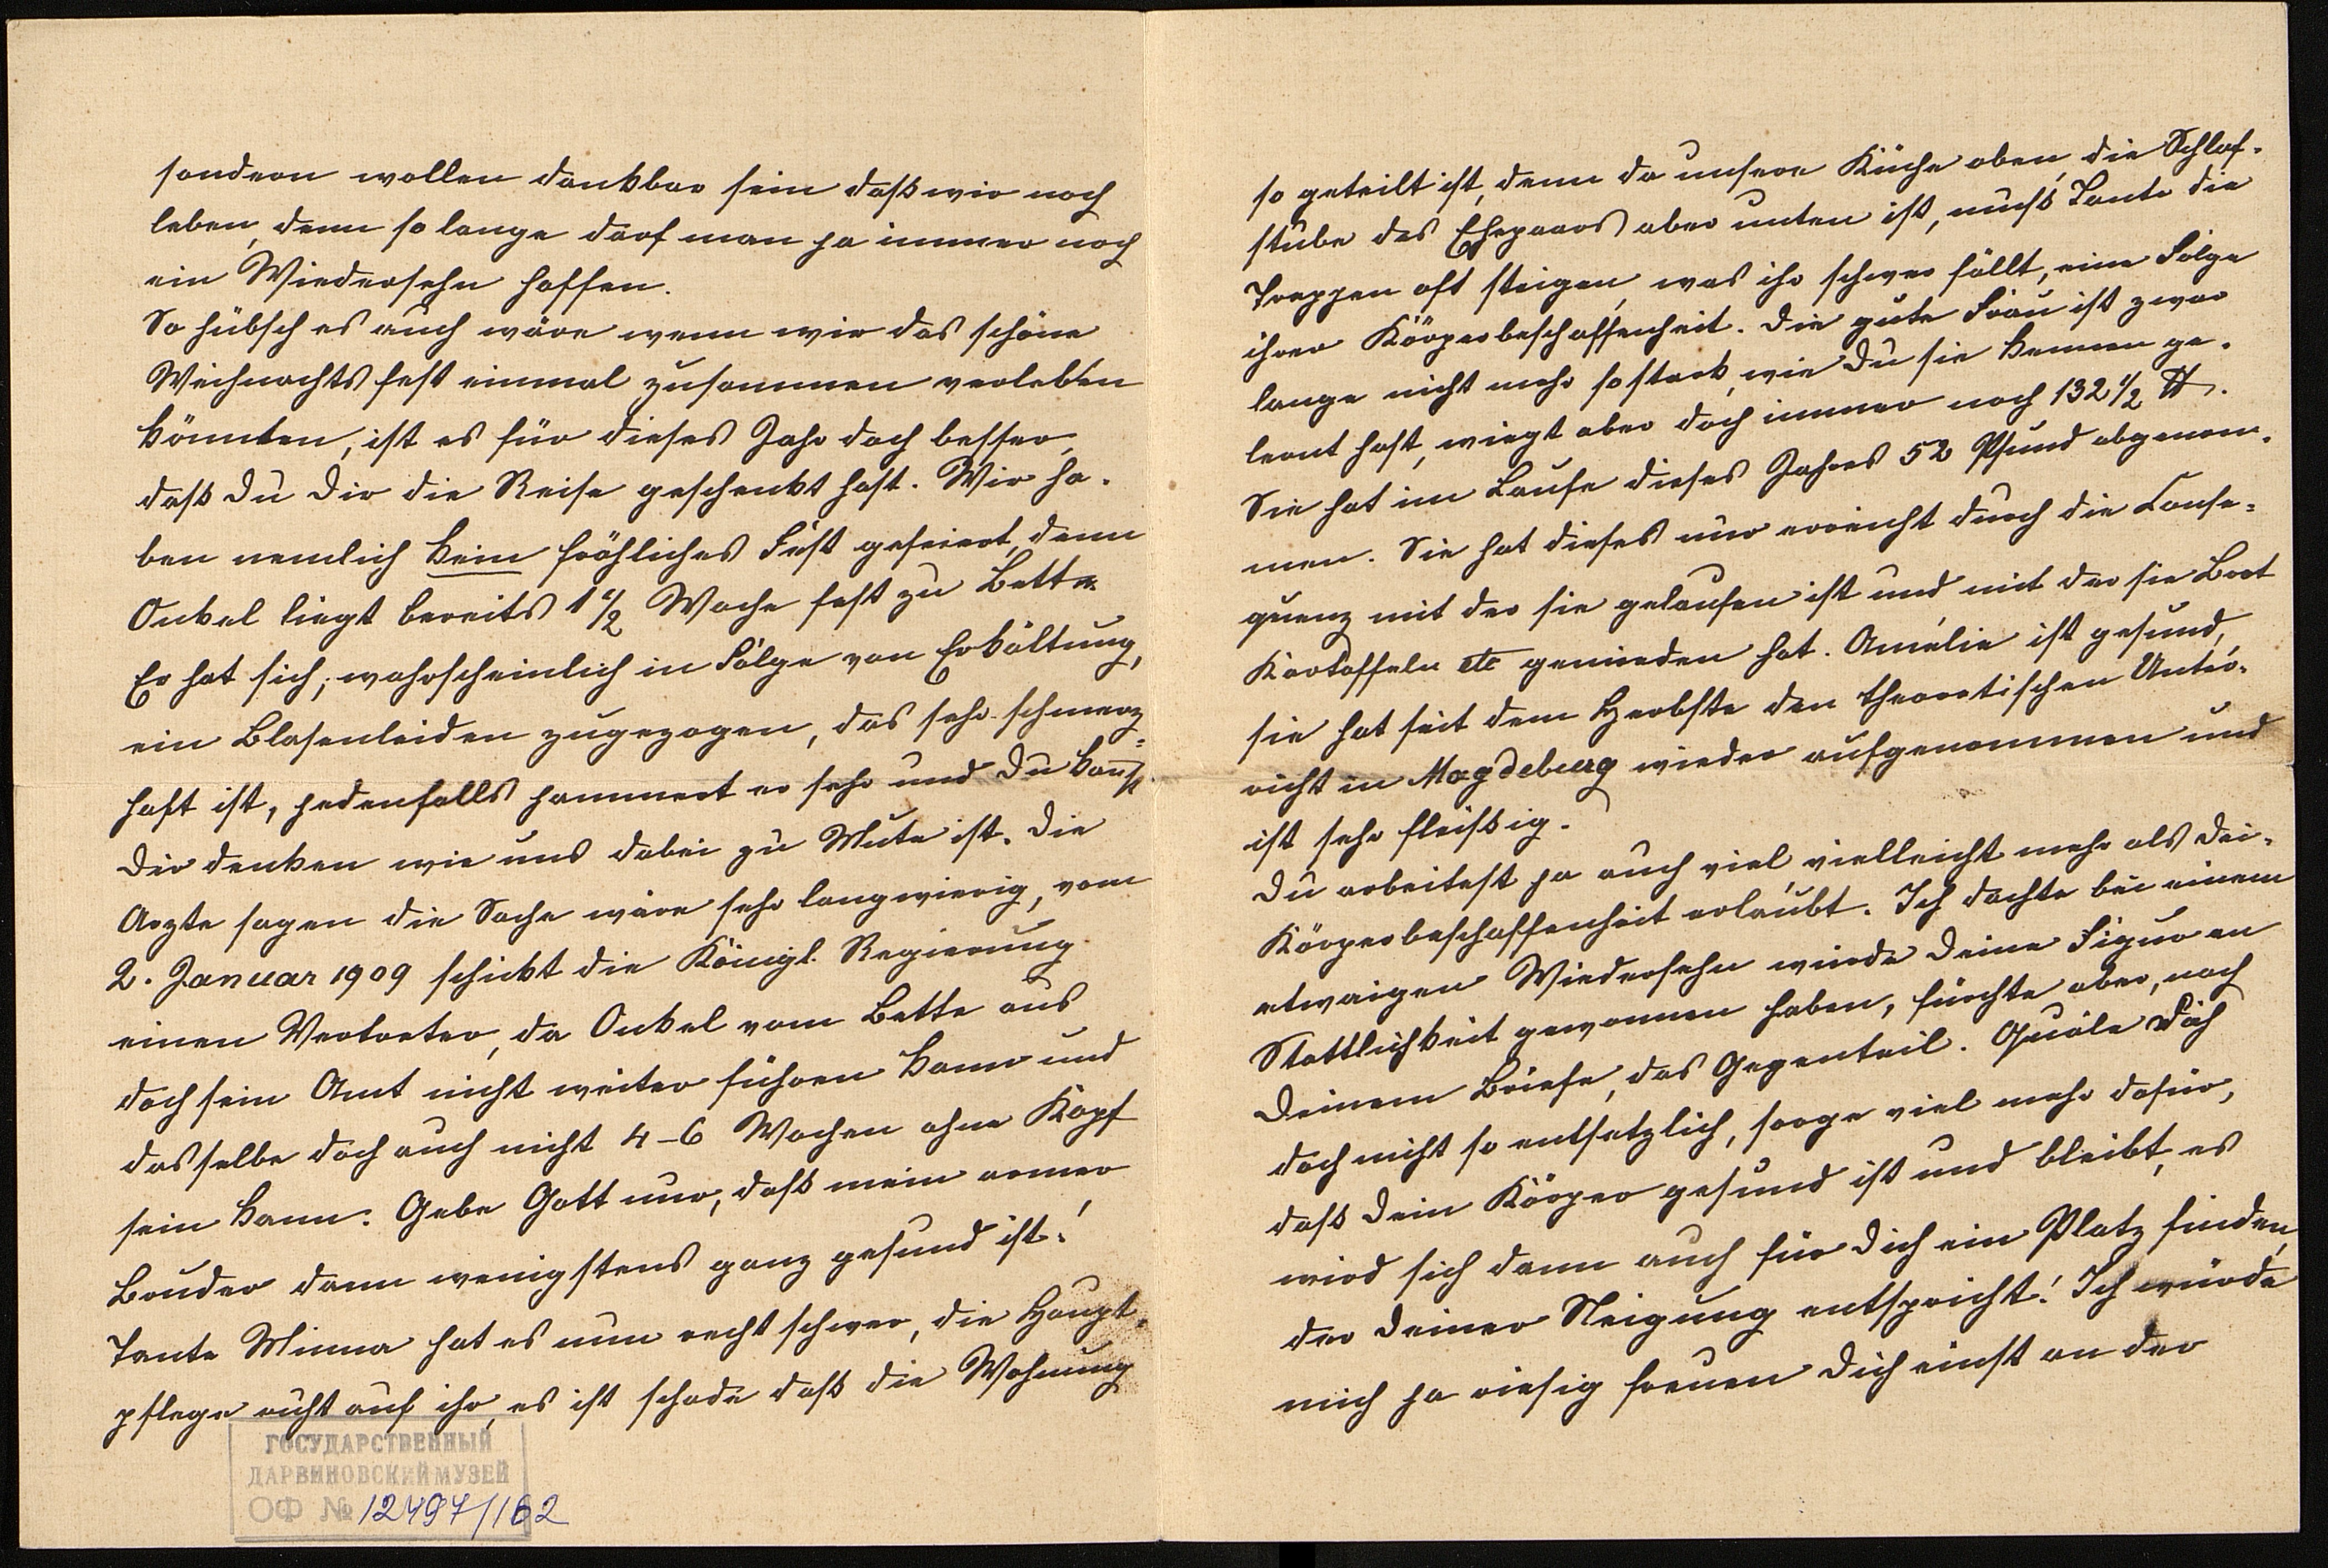 sondern wollen dankbar sein daß wir noch
leben, denn so lange darf man ja immer noch
ein Wiedersehn hoffen.
So hübsch es auch wäre wenn wir das schöne
Weihnachtsfest einmal zusammen verleben
könnten, ist es für dieses Jahr doch besser,
daß Du Dir die Reise geschenkt hast. Wir ha-
ben nemlich kein fröhliches Fest gefeiert, denn
Onkel liegt bereits 1 1/2 Woche fest zu Bette.
Er hat sich, wahrscheinlich in Folge von Erkältung,
ein Blasenleiden zugezogen, das sehr schmerz-
haft ist, jedenfalls jammert er sehr und Du kanst
Dir denken wie uns dabei zu Mute ist. Die
Arzte sagen die Sache wäre sehr langwierig, vom
2. Januar 1909 schickt die Königl. Regierung
einen Vertreter, da Onkel vom Bette aus
doch sein Amt nicht weiter führen kann und
dasselbe doch auch nicht 4-6 Wochen ohne Kopf
sein kann. Gebe Gott nur, daß mein armer
Bruder dann wenigstens ganz gesund ist!
Tante Minna hat es nun recht schwer, die Haupt-
pflege ruht auf ihr, es ist schade daß die Wohnung
ГОСУДАРСТВЕННЫЙ
ДАРВИНОВСКИЙ МУЗЕЙ
ОФ № 12497/162
so geteilt ist, denn da unsere Küche oben, die Schlaf-
stube des Ehepaars aber unten ist, muß Tante die
Treppen oft steigen, was ihr schwer fällt, eine Folge
ihrer Körperbeschaffenheit. Die gute Frau ist zwar
lange nicht mehr so stark, wie Du sie kennen ge-
lernt hast, wiegt aber doch immer noch 132 1/2 ℔.
Sie hat im Laufe dieses Jahres 52 Pfund abgenom-
men. Sie hat dieses nur erreicht durch die Conse-
quenz mit der sie gelaufen ist und mit der sie Brot
Kartoffeln etc gemieden hat. Amélie ist gesund,
sie hat seit dem Herbste den theoretischen Unter-
richt in Magdeburg wieder aufgenommen und
ist sehr fleißig.
Du arbeitest ja auch viel, vielleicht mehr als Dei-
Körperbeschaffenheit erlaubt. Ich dachte bei einem
etwaigen Wiedersehn würde Deine Figur an
Stattlichkeit gewonnen haben, fürchte aber, nach
Deinem Briefe, das Gegenteil. Quäle Dich
doch nicht so entsetzlich, sorge viel mehr dafür,
daß Dein Körper gesund ist und bleibt, es
wird sich dann auch für Dich ein Platz finden,
der Deiner Neigung entspricht! Ich würde
mich ja riesig freuen Dich einst an der